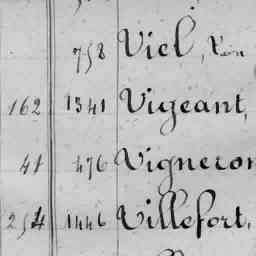 758 Viel,
162 1341 Vigeant,
41 476 Vigneron
254 1446 Villefort,